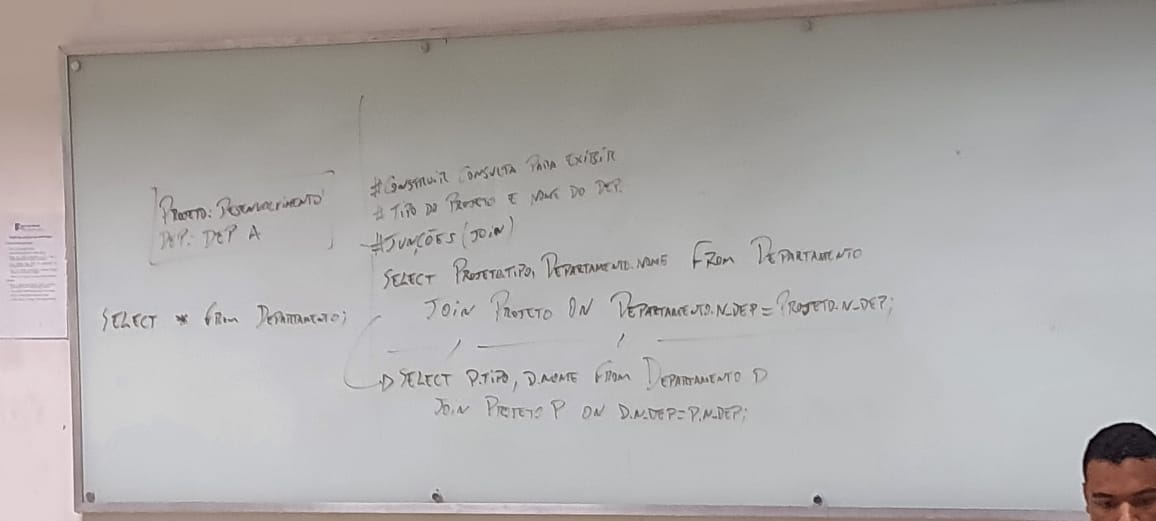 PROJETO: DESENVOLVIMENTO
DEP: DEP A
SELECT * FROM DEPARTAMENTO;
#CONSTRUIR CONSULTA PARA EXIBIR
# TIPO DO PROJETO E NOME DO DEP.
#JUNÇÕES (JOIN)
SELECT PROJETO.TIPO, DEPARTAMENTO.NOME FROM DEPARTAMENTO
JOIN PROJETO ON DEPARTAMENTO.N_DEP = PROJETO.N_DEP;
SELECT P.TIPO, D.NOME FROM DEPARTAMENTO D
JOIN PROJETO P ON D.N_DEP = P.N_DEP;